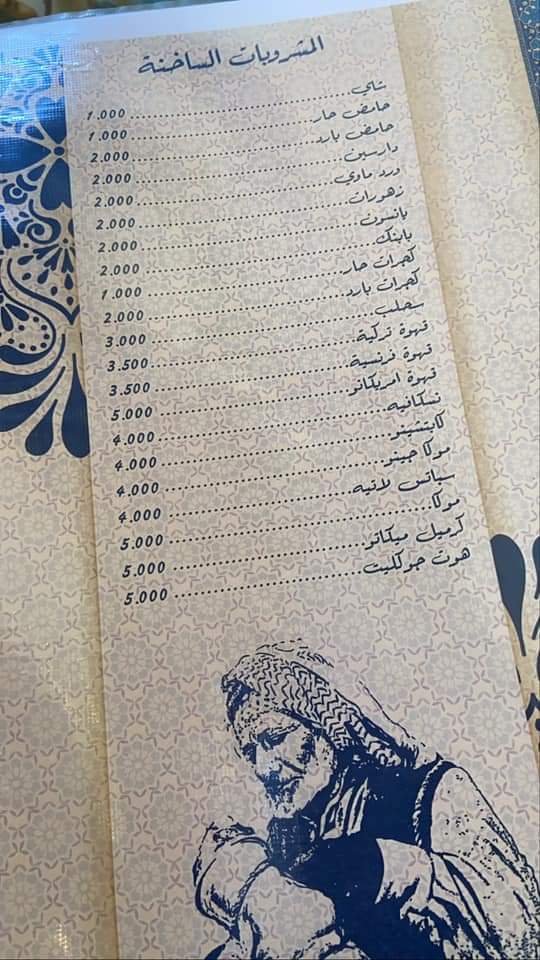 المشروبات الساخنة
شاي 1.000
حامض حار 1.000
حامض بارد 2.000
دارسين 2.000
ورد ماوي 2.000
زهورات 2.000
يانسون 2.000
بابنك 2.000
كجرات حار 1.000
كجرات بارد 2.000
سحلب 3.000
قهوة تركية 3.500
قهوة فرنسية 3.500
قهوة امريكانو 5.000
نسكافيه 4.000
كابتشينو 4.000
موكا جينو 4.000
سبانش لاتيه 4.000
موكا 5.000
كرميل ميكاتو 5.000
هوت جوكليت 5.000